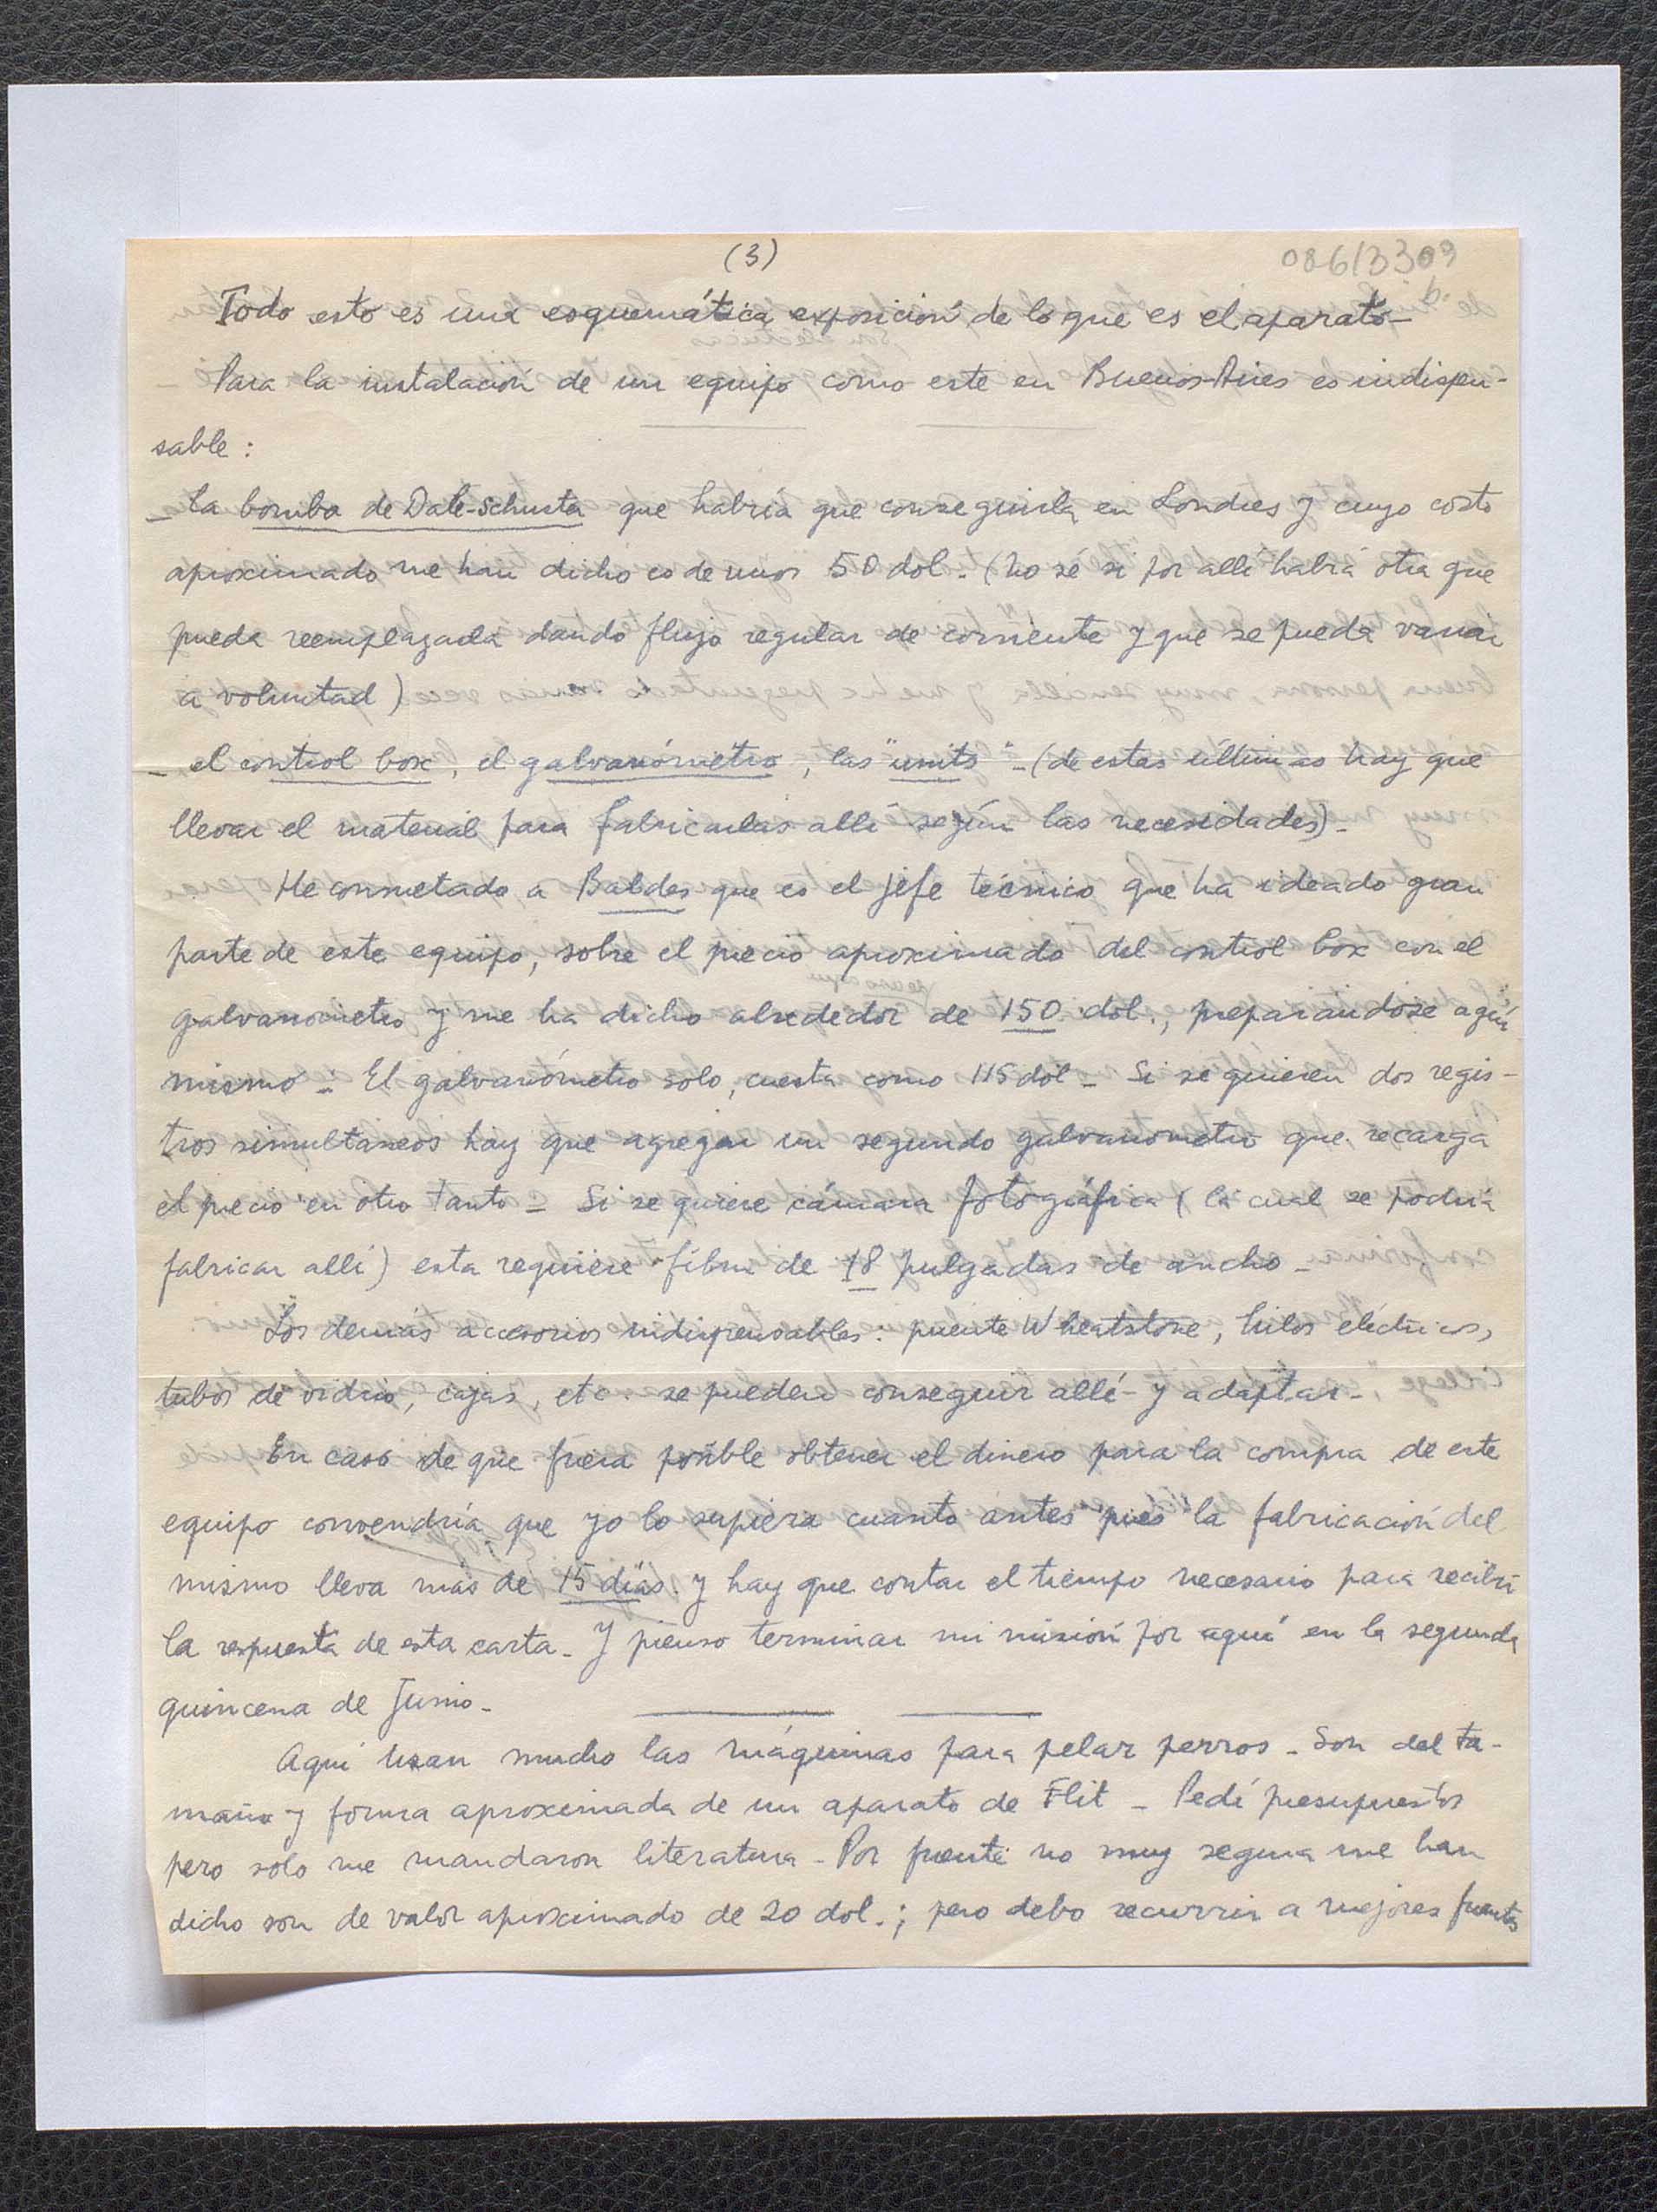 (3)
086/3309
b.
Todo esto es una esquemática exposición de lo que es el aparato-
Para la instalación de un equipo como este en Buenos-Aires es indispen-
sable :
- La bomba de Dale-Schuster que habría que conseguirla en Londres y cuyo costo
aproximado me han dicho es de unos 50 dol. (no sé si por allí habrá otra que
pueda reemplazarla dando flujo regular de corriente y que se pueda variar
a voluntad)
- el control box, el galvanómetro, las "units" - (de estas últimas hay que
llevar el material para fabricarlas allí según las necesidades).
He consultado a Baldes que es el jefe técnico que ha ideado gran
parte de este equipo, sobre el precio aproximado del control box con el
galvanometro y me ha dicho alrededor de 150 dol., preparándose aquí
mismo - El galvanómetro solo, cuesta como 115 dol - Si se quieren dos regis-
tros simultaneos hay que agregar un segundo galvanometro que recarga
el precio en otro tanto - Si se quiere cámara fotográfica (la cual se podría
fabricar allí) esta requiere film de 18 pulgadas de ancho -
Los demás accesorios indispensables: puente Wheatstone, hilos eléctricos,
tubos de vidrio, cajas, etc. se pueden conseguir allí - y adaptar -
En caso de que fuera posible obtener el dinero para la compra de este
equipo convendría que yo lo supiera cuanto antes pués la fabricación del
mismo lleva más de 15 días. y hay que contar el tiempo necesario para recibir
la respuesta de esta carta - Y pienso terminar mi misión por aquí en la segunda
quincena de Junio -
Aquí usan mucho las máquinas para pelar perros - Son del ta-
maño y forma aproximada de un aparato de Flit - Pedí presupuestos
pero solo me mandaron literatura - Por fuente no muy segura me han
dicho son de valor aproximado de 20 dol.; pero debo recurrir a mejores fuentes